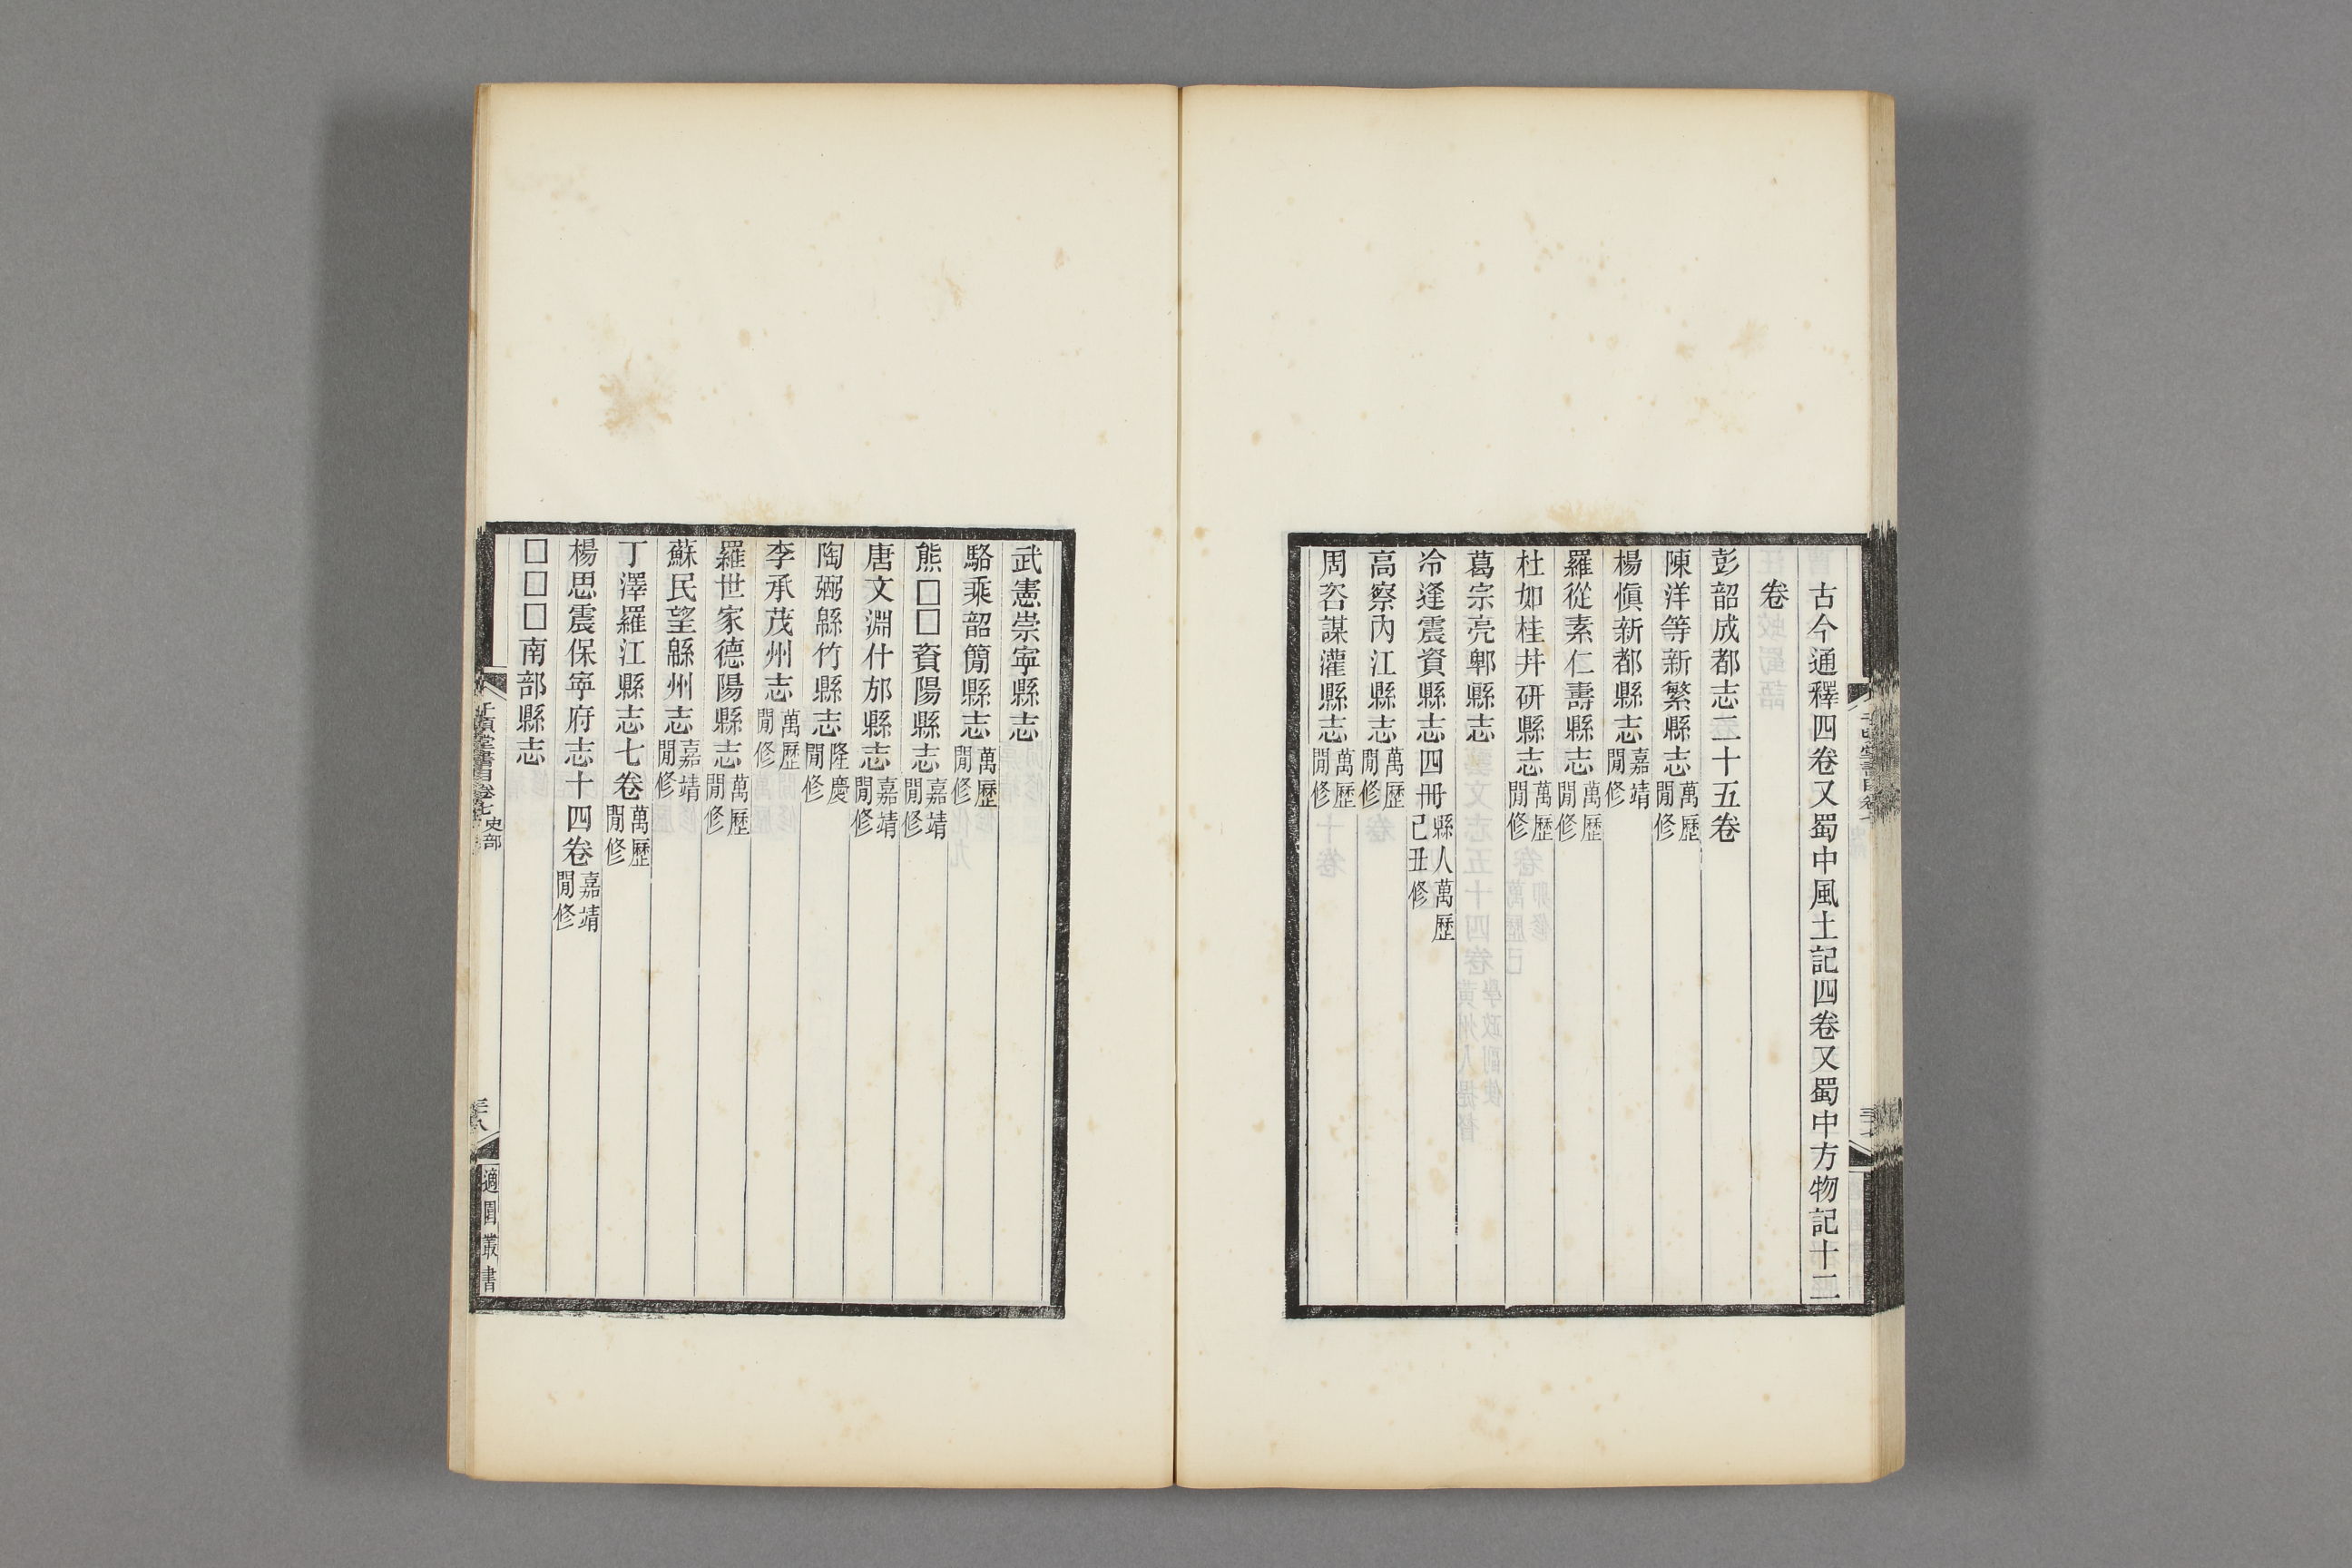 古今通釋四卷又蜀中風土記四卷又蜀中方物記十二
卷
彭韶成都志二十五卷
陳洋等新繁縣志萬歷閒修
楊愼新都縣志嘉靖閒修
羅從素仁壽縣志萬歷閒修
杜如桂井研縣志萬歷閒修
葛宗亮郫縣志
冷逢震資縣志四冊縣人萬歷己丑修
高察內江縣志萬歷閒修
周咨謀灌縣志萬歷閒修
武憲崇寧縣志
駱乘韶簡縣志萬歷閒修
熊□□資陽縣志嘉靖閒修
唐文淵什邡縣志嘉靖閒修
陶弼緜竹縣志隆慶閒修
李承茂州志萬歷閒修
羅世家德陽縣志萬歷閒修
蘇民望緜州志嘉靖閒修
丁澤羅江縣志七卷萬歷閒修
楊思震保寧府志十四卷嘉靖閒修
□□□南部縣志
千頃堂書目卷七 史部
三八
適園叢書